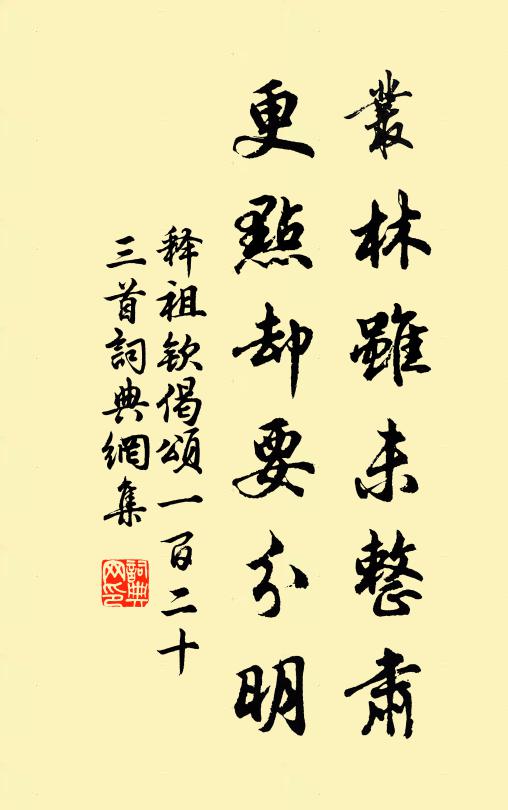 叢林雖未整肅
更點却要分明
释祖欽偈頌一百二十
三首詞典網集
詞典网印